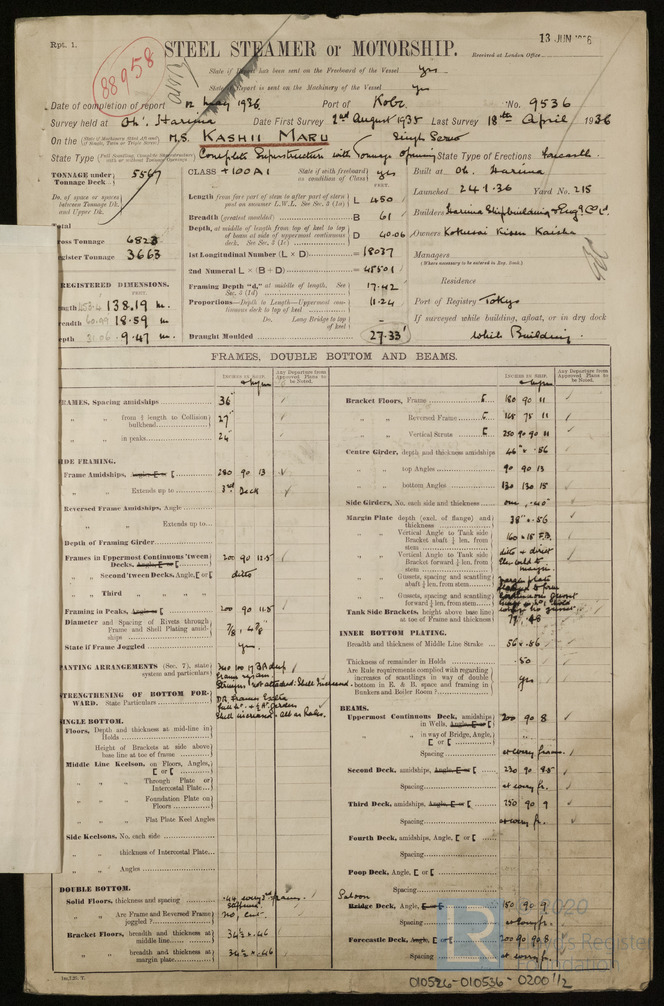 Rpt. 1.
13 JUN 1936
88958
STEEL STEAMER or MOTORSHIP.
Received at London Office
State if Report has been sent on the Freeboard of the Vessel yes
State if Report is sent on the Machinery of the Vessel yes
Date of completion of report 12 May 1936. Port of Kobe No. 9536
Survey held at Oh. Harima Date First Survey 2nd August 1935 Last Survey 18th April 1936
On the M.S. KASHII MARU Single Screw
State Type Complete Superstructure with Tonnage Opening State Type of Erections forecastle.
TONNAGE under Tonnage Deck 5567
Do. of space or spaces between Tonnage Dk. and Upper Dk.
Total
Gross Tonnage 6823
Register Tonnage 3663
REGISTERED DIMENSIONS.
FEET.
Length 453.4 138.19 m.
Breadth 60.99 18.59 m.
Depth 31.06 9.47 m.
CLASS +100A1 State if with freeboard as condition of Class yes
FEET.
Length from fore part of stem to after part of stern post on summer L.W.L. See Sec. 3 (1a) L 450
Breadth (greatest moulded) B 61
Depth, at middle of length from top of keel to top of beam at side of uppermost continuous deck. See Sec. 3 (1c) D 40.06
1st Longitudinal Number (L × D) = 18027
2nd Numeral L × (B + D) = 45501
Framing Depth "d," at middle of length. See Sec. 3 (1d) 17.42
Proportions—Depth to Length—Uppermost continuous deck to top of keel 11.24
Do. Long Bridge to top of keel –
Draught Moulded 27.33'
Built at Oh. Harima
Launched 24.1.36 Yard No. 215
Builders Harima Shipbuilding & Eng. Co Ld.
Owners Kokusai Kisen Kaisha
Managers
(Where necessary to be entered in Reg. Book.)
Residence
Port of Registry Tokyo
If surveyed while building, afloat, or in dry dock
While Building.
FRAMES, DOUBLE BOTTOM AND BEAMS.
INCHES IN SHIP.
Any Departure from Approved Plans to be Noted.
FRAMES, Spacing amidships 36"
" " from ⅗ length to Collision bulkhead 27"
" " in peaks 24"
SIDE FRAMING.
Frame Amidships, Angle, E or [ 280 90 13
" " Extends up to 3rd Deck
Reversed Frame Amidships, Angle
" " Extends up to
Depth of Framing Girder
Frames in Uppermost Continuous 'tween Decks, Angle, E or [ 200 90 11.5
" " Second 'tween Decks, Angle, [ or [ ditto
" " Third " " "
Framing in Peaks, Angle or [ 200 90 11.5
Diameter and Spacing of Rivets through Frame and Shell Plating amidships 7/8, 4 7/8"
State if Frame Joggled yes.
PANTING ARRANGEMENTS (Sec. 7), state system and particulars
Stringers not attached. Shell Increased.
STRENGTHENING OF BOTTOM FORWARD. State Particulars
Shell increased
SINGLE BOTTOM.
Floors, Depth and thickness at mid-line in Holds
Height of Brackets at side above base line at toe of frame
Middle Line Keelson, on Floors, Angles, [ or [
" " " Through Plate or Intercostal Plate
" " " Foundation Plate on Floors
" " " Flat Plate Keel Angles
Side Keelsons, No. each side
" " thickness of Intercostal Plate
" " Angles
DOUBLE BOTTOM.
Solid Floors, thickness and spacing .44 every 3rd frame.
" " Are Frame and Reversed Frame joggled? no, cut.
Bracket Floors, breadth and thickness at middle line 34½ x .46
" " breadth and thickness at margin plate 34½ x .46
1m.7.35. T.
INCHES IN SHIP.
Any Departure from Approved Plans to be Noted.
Bracket Floors, Frame [ 180 90 11
" " Reversed Frame [ 165 75 11
" " Vertical Struts [ 250 90 90 11
Centre Girder, depth and thickness amidships 46" x .56
" " top Angles 90 90 13
" " bottom Angles 130 130 15
Side Girders, No. each side and thickness one, .40"
Margin Plate depth (excl. of flange) and thickness 38" x .56
" " Vertical Angle to Tank side Bracket abaft ¼ len. from stem 160 x 15 F.B.
" " Vertical Angle to Tank side Bracket forward ¼ len. from stem
" " Gussets, spacing and scantling abaft ¼ len. from stem
" " Gussets, spacing and scantling forward ¼ len. from stem
Tank Side Brackets, height above base line at toe of Frame and thickness 77" .48
INNER BOTTOM PLATING.
Breadth and thickness of Middle Line Strake 56 x .56
Thickness of remainder in Holds .50
Are Rule requirements complied with regarding increases of scantlings in way of double bottom in E. & B. space and framing in Bunkers and Boiler Room? yes
BEAMS.
Uppermost Continuous Deck, amidships in Wells, Angle, E or [ 200 90 8
" " in way of Bridge, Angle, [ or [ "
Spacing at every frame.
Second Deck, amidships, Angle, E or [ 230 90 8.5
Spacing at every fr.
Third Deck, amidships, Angle, E or [ 250 90 9
Spacing at every fr.
Fourth Deck, amidships, Angle, [ or [
Spacing
Poop Deck, Angle, [ or [
Spacing
Saloon
Bridge Deck, Angle, E or [ 150 90 9
Spacing at every fr.
Forecastle Deck, Angle, E or [ 200 90 90 8
Spacing at every fr.
© 2020
Lloyd's Register
Foundation
010526-010536-0200 1/2